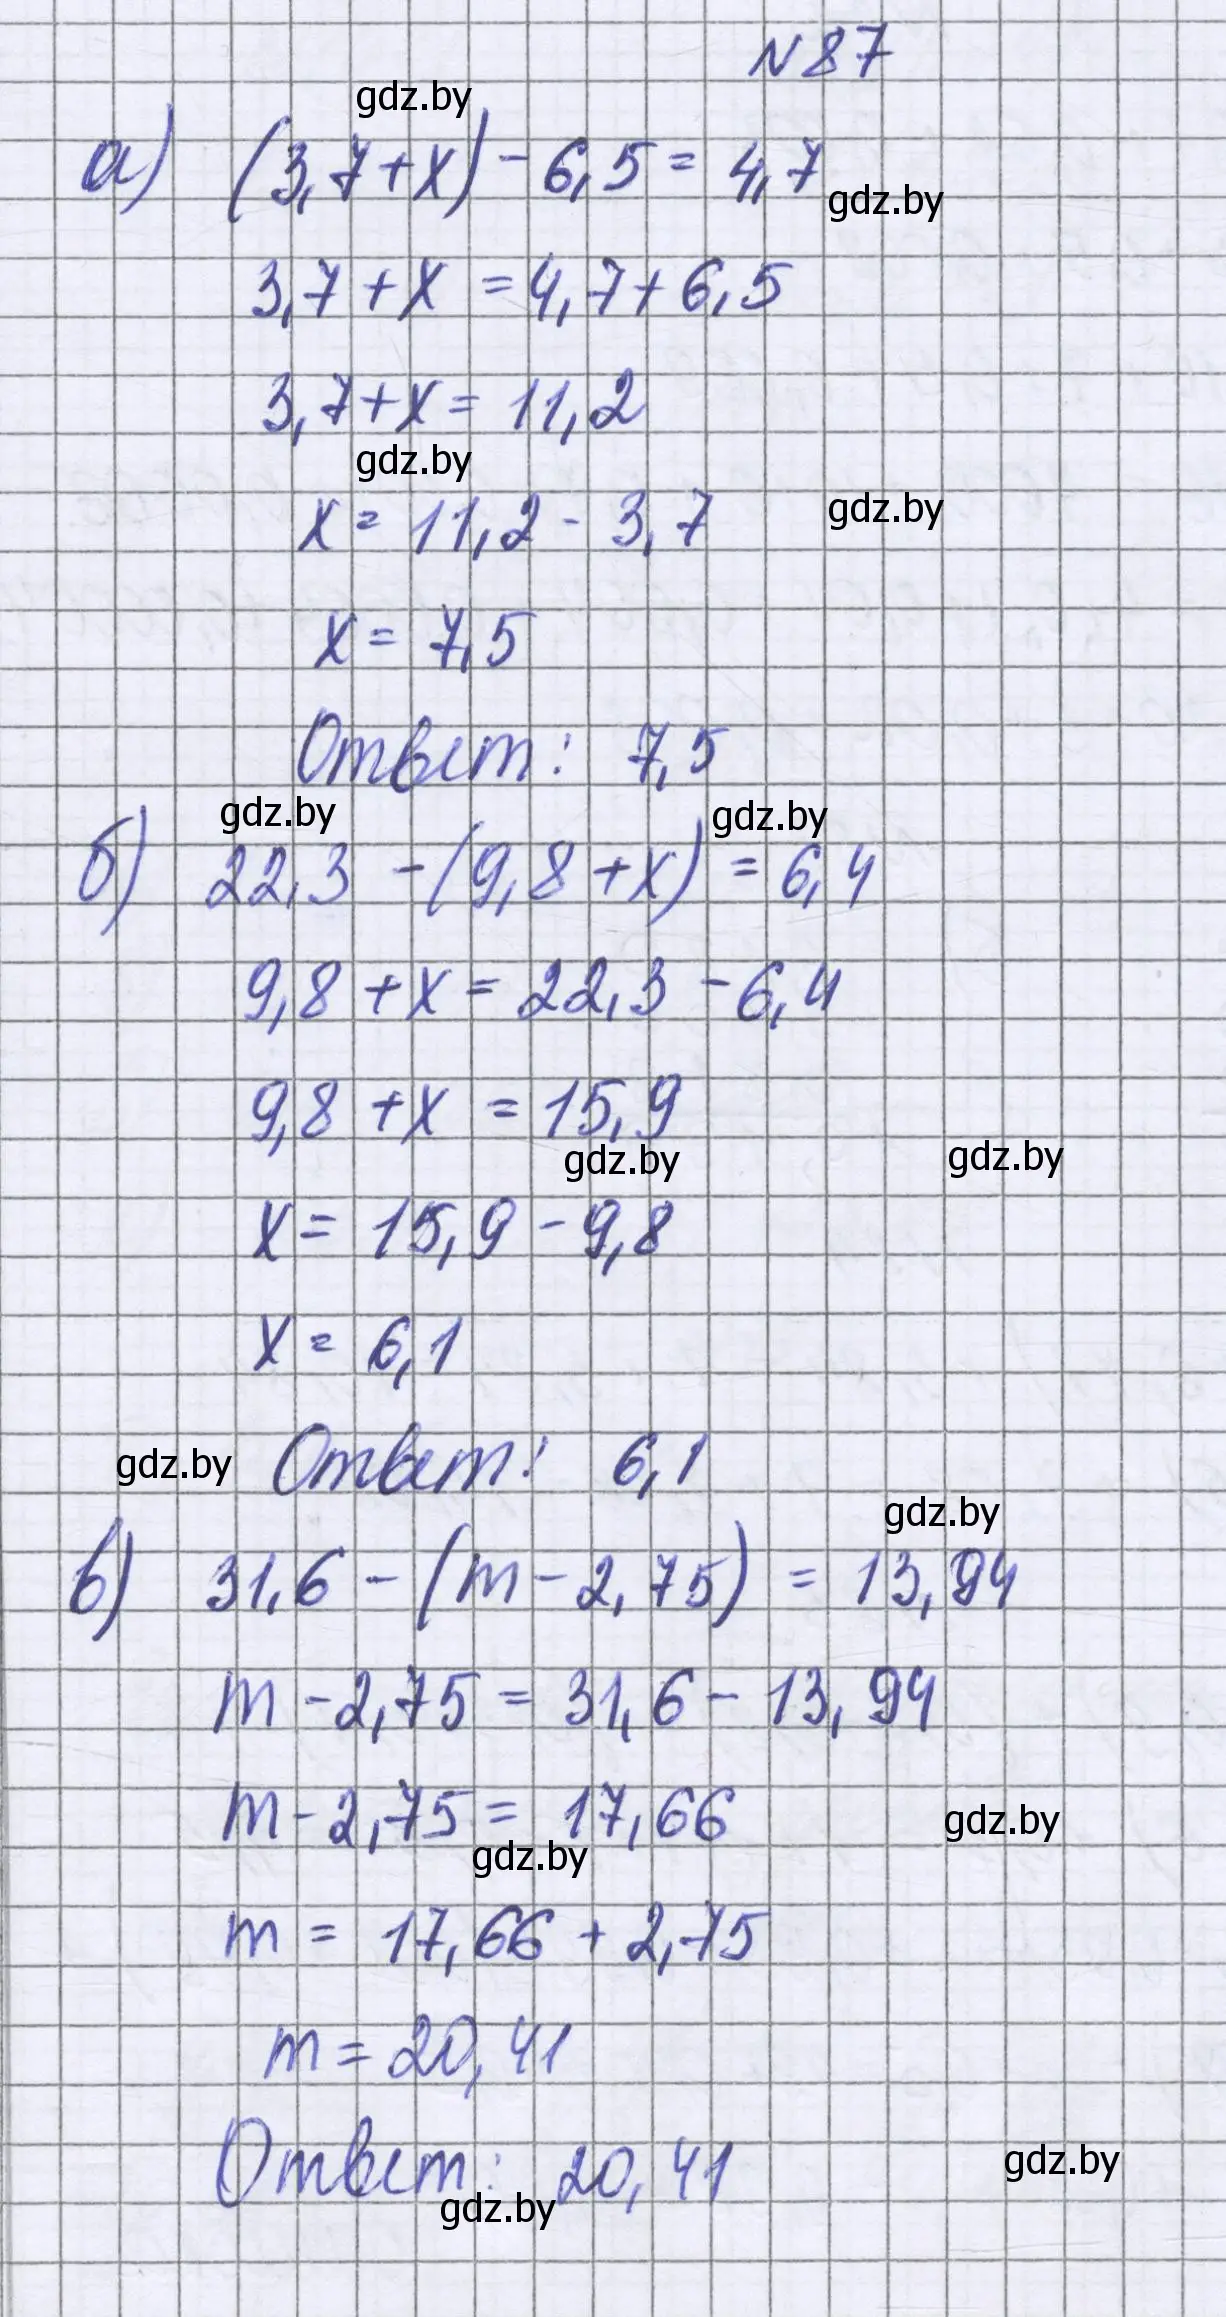 N87
gdz.by
а) (3,7+x) - 6,5 = 4,7
gdz.by
3,7 + x = 4,7 + 6,5
3,7 + x = 11,2
gdz.by
x = 11,2 - 3,7
gdz.by
x = 7,5
Ответ: 7,5
gdz.by
gdz.by
б) 22,3 - (9,8 + x) = 6,4
9,8 + x = 22,3 - 6,4
9,8 + x = 15,9
gdz.by
gdz.by
x = 15,9 - 9,8
x = 6,1
gdz.by
Ответ: 6,1
gdz.by
в) 31,6 - (m - 2,75) = 13,94
m - 2,75 = 31,6 - 13,94
m - 2,75 = 17,66
gdz.by
gdz.by
m = 17,66 + 2,75
m = 20,41
Ответ: 20,41
gdz.by
gdz.by